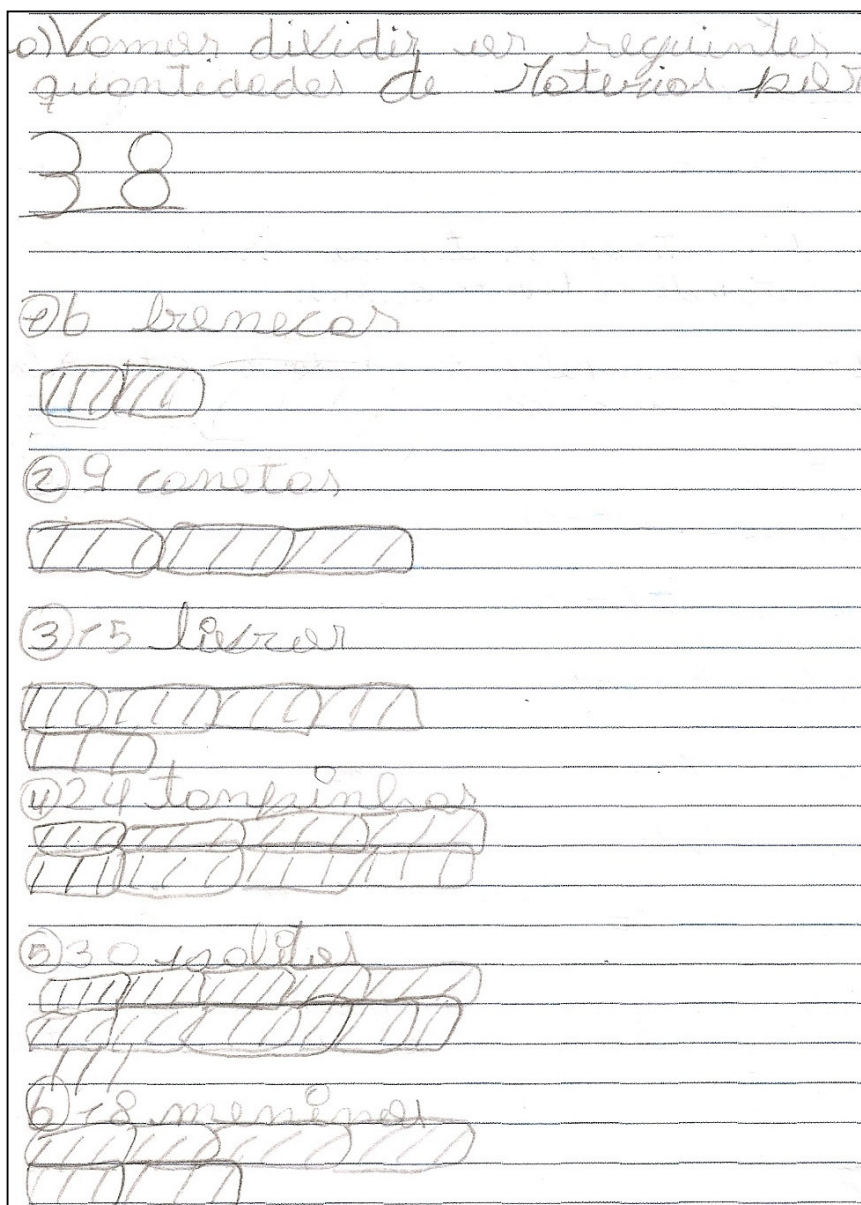 a) Vamos dividir as seguintes
quantidades de materiais por
3 8
① 6 bonecas
② 9 canetas
③ 15 livros
④ 24 tampinhas
⑤ 30 palitos
⑥ 18 meninos